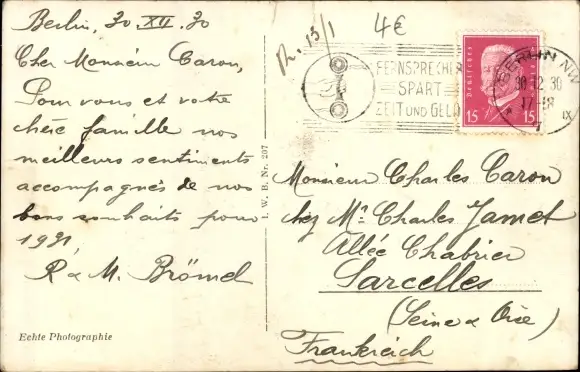 Berlin, 30.XII.30
Cher Monsieur Caron,
Pour vous et votre
chère famille nos
meilleurs sentiments
accompagnés de nos
bons souhaits pour
1931.
R & M. Brömel
Echte Photographie
I. W. B. Nr. 207
R. 13/1
4€
FERNSPRECHER
SPART
ZEIT UND GELD
Deutsches
15 15
BERLIN NW
30.12.30
17-18
IX
Monsieur Charles Caron
chez Mr. Charles Jamet
Allée Chabrier
Sarcelles
(Seine & Oise)
Frankreich